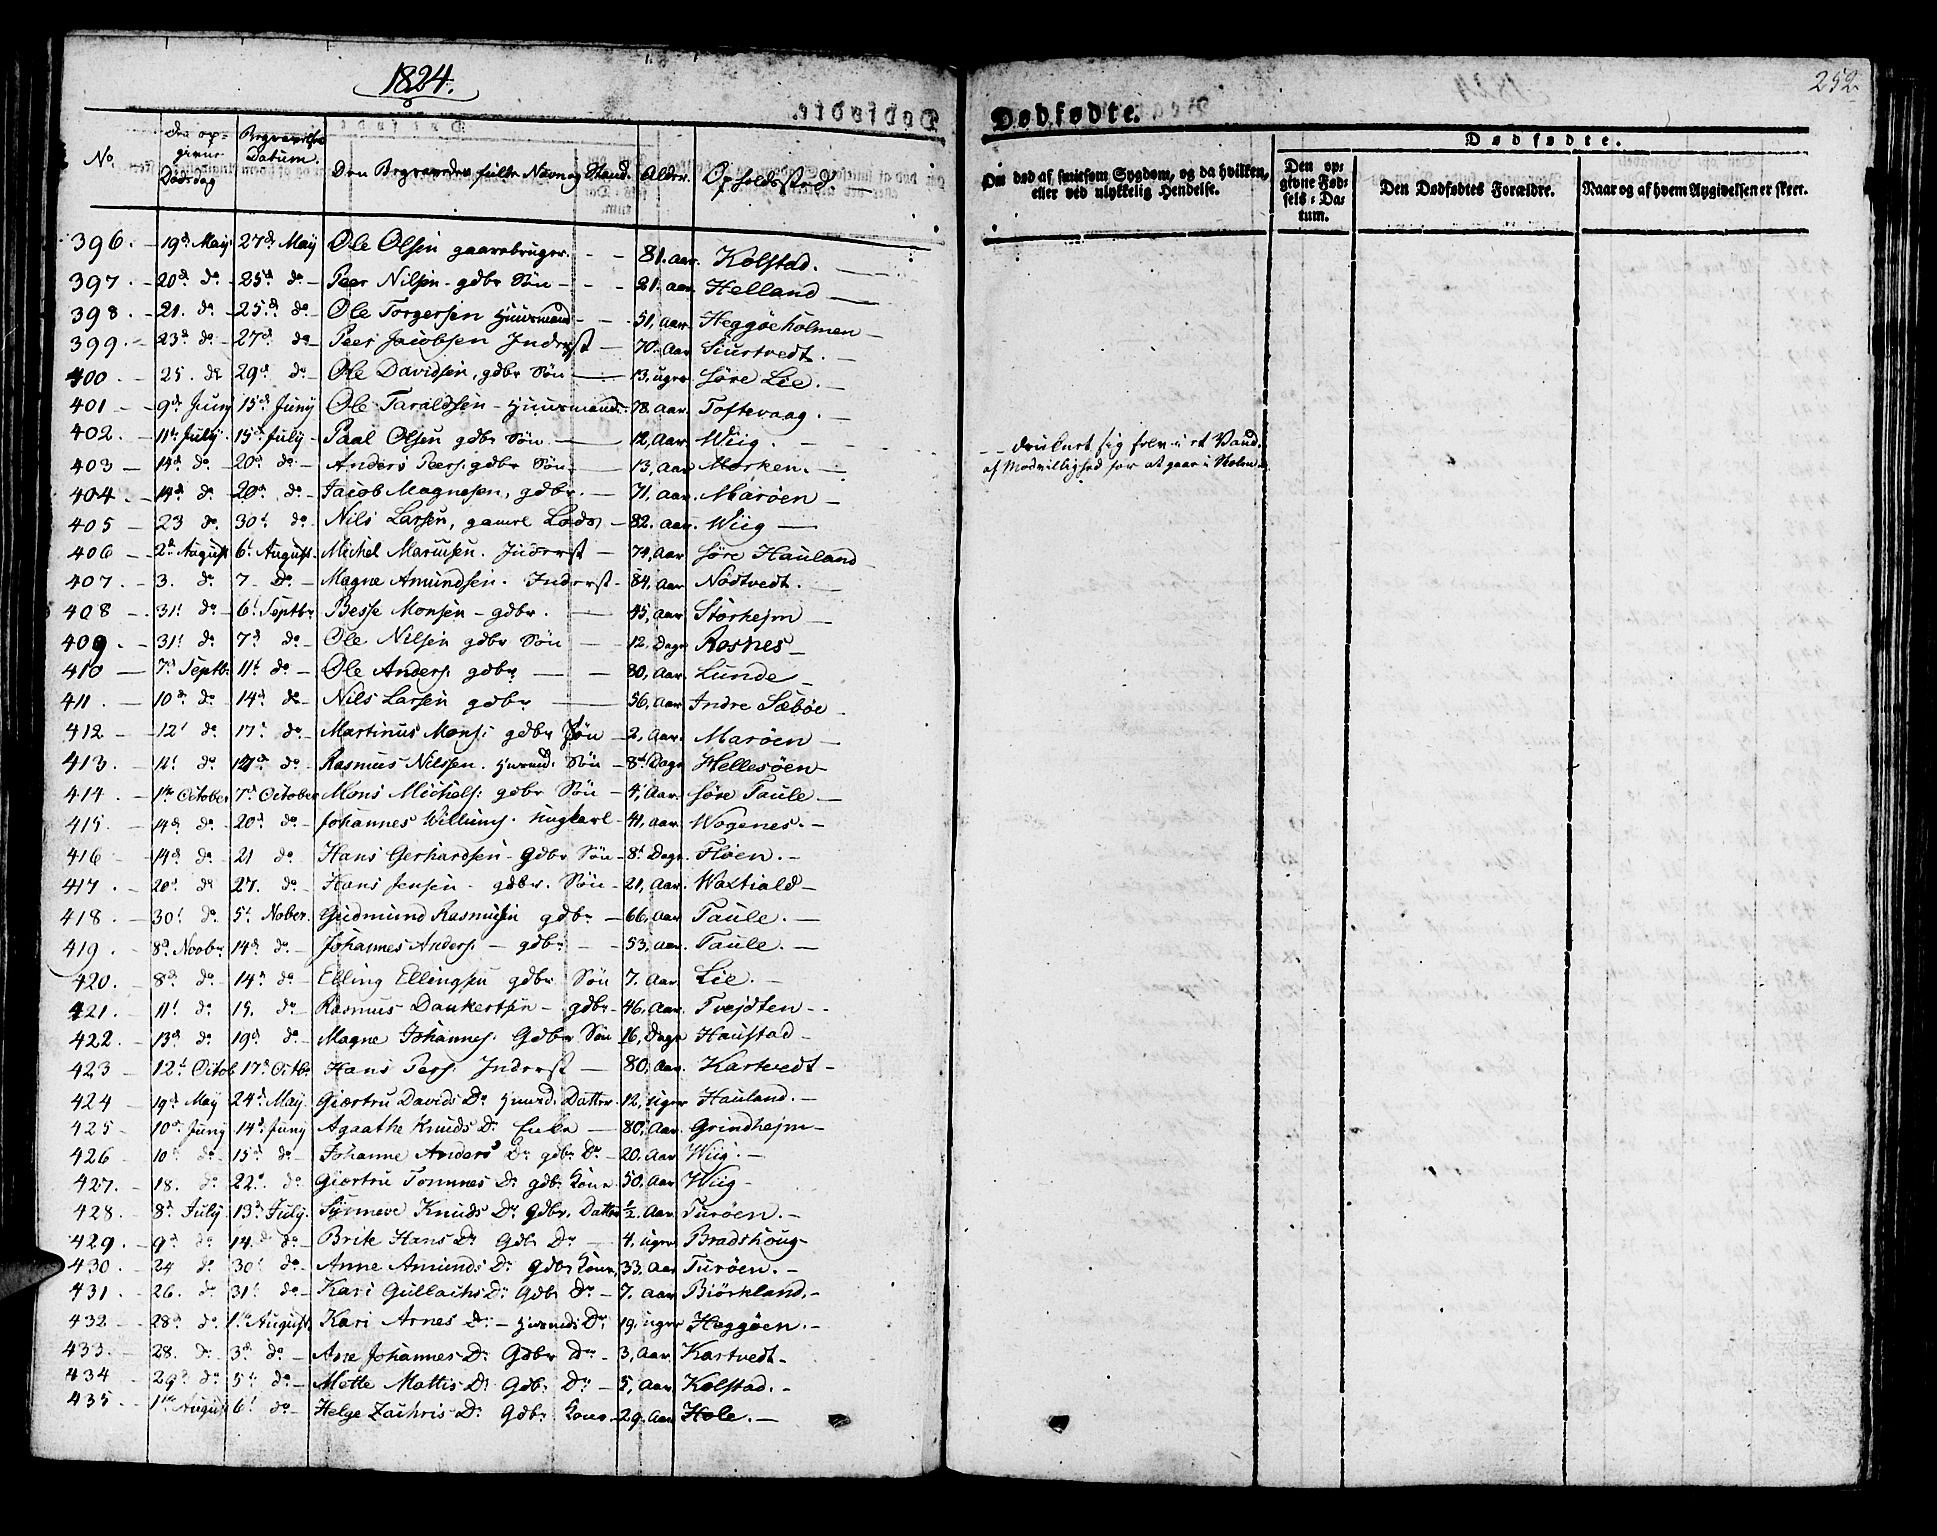 1824.
252
Dødfødte.
No.
Den opgivne Dødsdag
Begravelses Datum.
Den Begravedes fulde Navn og Stand.
Alder.
Opholdssted
Om død af smitsom Sygdom, og da hvilken, eller ved ulykkelig Hendelse.
Dødfødte.
Den opgivne Fødsels-Datum.
Den Dødfødtes Forældre.
Naar og af hvem Angivelsen er skeet.
396. 19d May 27d May Ole Olsen gaardbruger. 81. aar. Kolstad.
397. 20d do 25d do Peer Nilsen gdbr Søn 21. aar Helland
398. 21. do 25d do Ole Torgersen Huusmand 51, aar. Heggøeholmen
399. 23d do 27d do Peer Jacobsen Inderst 70. aar Siurtvedt.
400. 25. do 29d do Ole Davidsen, gdbr Søn 13, uger Søre Lie.
401 9d Juny 15d Juny Ole Taraldsen Huusmand 78. aar. Toftevaag.
402. 11t July 15d July Paal Olsen gdbr Søn 12, aar Wiig. druknet sig selv i et Vand
af Modvillighed for at gaae i Skolen
403 14d do 20d do Anders Peers. gdbr Søn 13, aar Morken.
404. 14d do 20d do Jacob Magnesen, gdbr. 71, aar. Marøen
405 23 do 30t do Nils Larsen, gamel Lods 82. aar. Wiig
406 2d August 6t August Michel Mariusen. Inderst 74, aar Søre Hauland
407. 3. do 7 do Magne Amundsen. Inderst 84, aar Nødtvedt.
408 31t do 6t Septbr Besse Monsen gdbr. 45, aar Storhejm
409. 31t do 7d do Ole Nilsen gdbr Søn 12. Dage Rosnes
410 7d Septbr 11t do Ole Anders. gdbr 80, aar. Lunde
411. 10d do 14d do Nils Larsen gdbr 56, aar Indre Sæbøe
412 12t do 17d do Martinus Mons: gdbr Søn 2, aar. Marøen
413. 14t do 17d do Rasmus Nilssen. Huusmd. Søn 8t Dage Hellesøen
414 1te October 7d October Mons Michels: gdbr Søn 4, aar. Søre Taule
415. 14d do 20d do Johannes Willums. ungkarl 41, aar. Wogenes.
416 14d do 21 do Hans Gerhardsen Gdbr Søn 8t Dage. Fløen.
417. 20d do 27. do Hans Jensen gdbr. Søn 21, aar. Waxtiald
418. 30t do 5t Nober. Gudmund Rasmusen gdbr 66, aar Taule.
419. 8d Noobr 14d do Johannes Anders. gdbr 53, aar. Taule.
420. 8d do 14d do Elling Ellingsen gdbr Søn 7. aar. Lie.
421. 11t do 15. do Rasmus Dankertsen gdbr 46, aar. Tvejdten
422. 13d do 19d do Magne Johannes. Gdbr Søn 16, Dage Haustad
423 12t Octob 17d Octb: Hans Pers. Inderst 80, aar. Kartvedt
424 19d May 24d May. Giørtru Davids Dr Huusmd. Datter. 12, uger Hauland.
425 10d Juny 14d Juny Agaathe Knuds Dr Enke 80, aar. Grindhejm
426 10d do 15d do Johanne Anders Dr gdbr Dr 20. aar Wiig.
427. 18. do 22d do Giørtru Tommes Dr gdbr Kone. 50, aar Wiig
428. 8d July 13d July. Synneve Knuds Dr Gdbr. Datter ½. aar. Turøen.
429. 9d do 14. do Brite Hans Dr Gdb. Dr 4, uger Bradshoug
430. 24 do 30t do Anne Amunds Dr gdbr Kone, 33, aar Turøen.
431. 26. do 31t do Kari Gullachs Dr Gdbr Dr 7. aar Biørkland.
432 28d do 1te August Kari Arnes Dr Huusmds Dr 19, uger Heggøen.
433. 28. do 3d do Ane Johannes Dr Gdbr Dr 3, aar Kartvedt
434 29d do 5t do Mette Mattis Dr Gdbr Dr 5, aar Kolstad.
435 1te August 6t do Helge Zachris Dr Gdbr Kone 29, aar Hole.